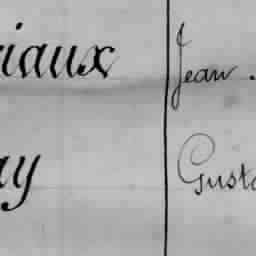 riaux Jean.
ay Gusta